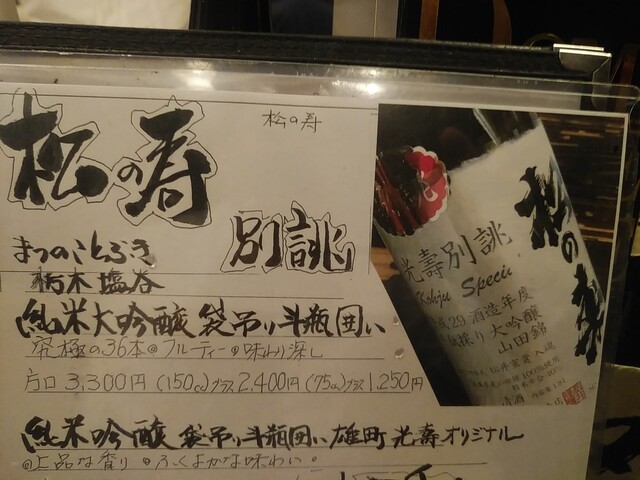 松の寿
松の寿
別誂
まつのことぶき
栃木 塩谷
純米大吟醸 袋吊り斗瓶囲い
究極の36本@フルーティー@味わり深し
片口 3,300円 (150cc)グラス 2,400円 (75cc)グラス 1,250円
純米吟醸 袋吊り斗瓶囲い 雄町 光壽オリジナル
@上品な香り @ふくよかな味わい。
松の寿
光壽別誂
Kohju Special
29酒造年度
大吟醸
山田錦
清酒